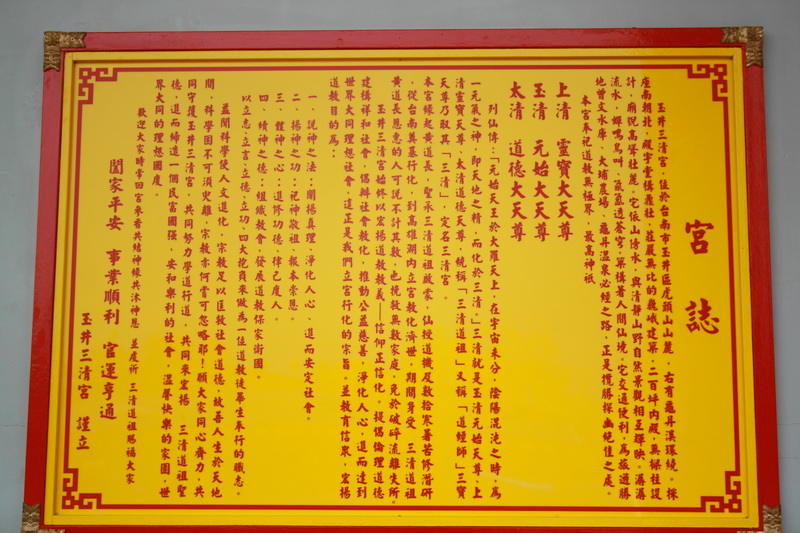 宮誌
玉井三清宮，位於台南市玉井區虎頭山山麓，右有龜丹溪環繞。採
座南朝北，殿宇堂構矗壯，莊嚴無比的巍峨建築，二百坪內殿，無樑柱設
計，廟貌高聳壯麗。它依山傍水，與清靜山野自然景觀相互輝映。潺潺
流水，蟬鳴鳥叫，氤氳透蒼穹，架構著人間仙境。它交通便利，為旅遊勝
地曾文水庫、大埔農場、龜丹溫泉必經之路，正是攬勝探幽絕佳之處。
本宮奉祀道教無極界，最高神祇
上清 靈寶大天尊
玉清 元始大天尊
太清 道德大天尊
列仙傳：「元始天王於大羅天上，在宇宙未分，陰陽混沌之時，為
一元氣之神，即天地之精，而化於三清。」三清就是玉清元始天尊，上
清靈寶天尊，太清道德天尊，統稱「三清道祖」又稱「道經師」三寶
天尊乃取其「三清」，定名三清宮。
本宮緣起黃道長，聖承三清道祖啟蒙，仙授道機及數拾寒暑苦修潛研
，從台南奠基行化，到高雄湖內立宮教化濟世，期間身受 三清道祖
黃道長恩惠的人可說不計其數，也挽救無數家庭，免於破碎流離失所。
玉井三清宮始終以宏揚道教教義——信仰正信化。提倡倫理道德
建構祥和社會，倡辦社會教化，推動公益慈善，淨化人心，進而達到
世界大同理想社會，這正是我們立宮行化的宗旨。並教育信眾，宏揚
道教目的為：
一、說神之法：闡揚真理，淨化人心、進而安定社會。
二、揚神之功：祀神敬祖，報本崇恩。
三、體神之心：道修功德，律己度人。
四、績神之德：組織教會，發展道教保家衛國。
以立志；立言；立德；立功，四大抱負來做為一位道教徒畢生奉行的職志。
益聞科學使人文進化，宗教足以匡救社會道德，故吾人生於天地
間，科學固不可須臾離，宗教亦何嘗可忽略耶！願大家同心齊力，共
同守護玉井三清宮，共同努力學道行道，共同來宏揚 三清道祖聖
德，進而締造一個民富國強，安和樂利的社會，溫馨快樂的家園，世
界大同的理想國度。
歡迎大家時常回宮來看共結神緣共沐神恩 並虔祈 三清道祖賜福大家
闔家平安 事業順利 官運亨通
玉井三清宮 謹立